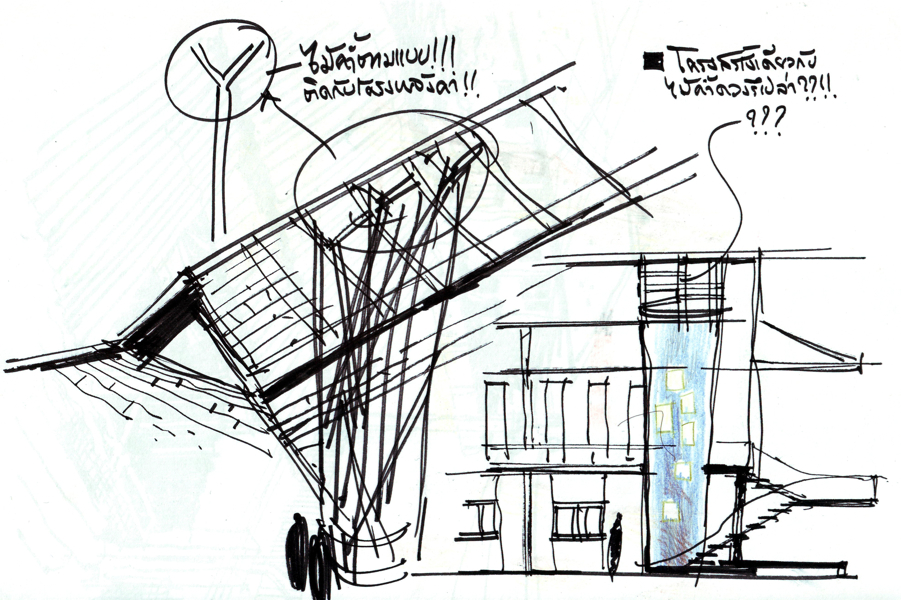 ไม้ค้ำตามแบบ!!!
ติดกับโครงหลังคา!!
โครงสร้างเดียวกับ
ไม้ค้ำด้วยรึเปล่า??!!
???